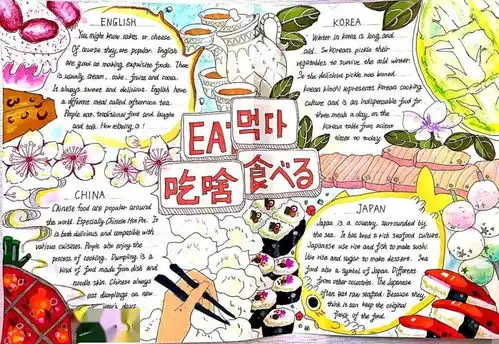 ENGLISH
You might know cakes or cheese.
Of course they are popular. English
are good at making exquisite foods. There
is usually cream, cake, fruits and cocoa.
It always sweet and delicious. English have
a different meal called afternoon tea.
People eat traditional food and laughs
and talk. How relaxing is !
KOREA
Winter in korea is long and
cold. So Koreans pickle their
vegetables to survive the cold winter.
So the delicious pickle was named
korean kimchi represents korean cooking
culture and is an indispensable food for
three meals a day, on the
Korean table from acient
times to today.
EAT
먹다
吃啥
食べる
CHINA
Chinese food are popular around
the world. Especially Chinese Hot Pot. It
is both delicious and compatible with
various cuisines. People also enjoy the
process of cooking. Dumpling is a
kind of food made from dish and
noodle skin. Chinese always
eat dumplings on new
year's days.
JAPAN
Japan is a country surrounded by
the sea. It has bred a rich seafood culture.
Japanese use rice and fish to make sushi.
Use rice and sugar to make dessert. Sea
food also a symbol of Japan. Different
from other countries. The Japanese
often eat raw seafood. Because they
think it can keep the original
flavor of the food.